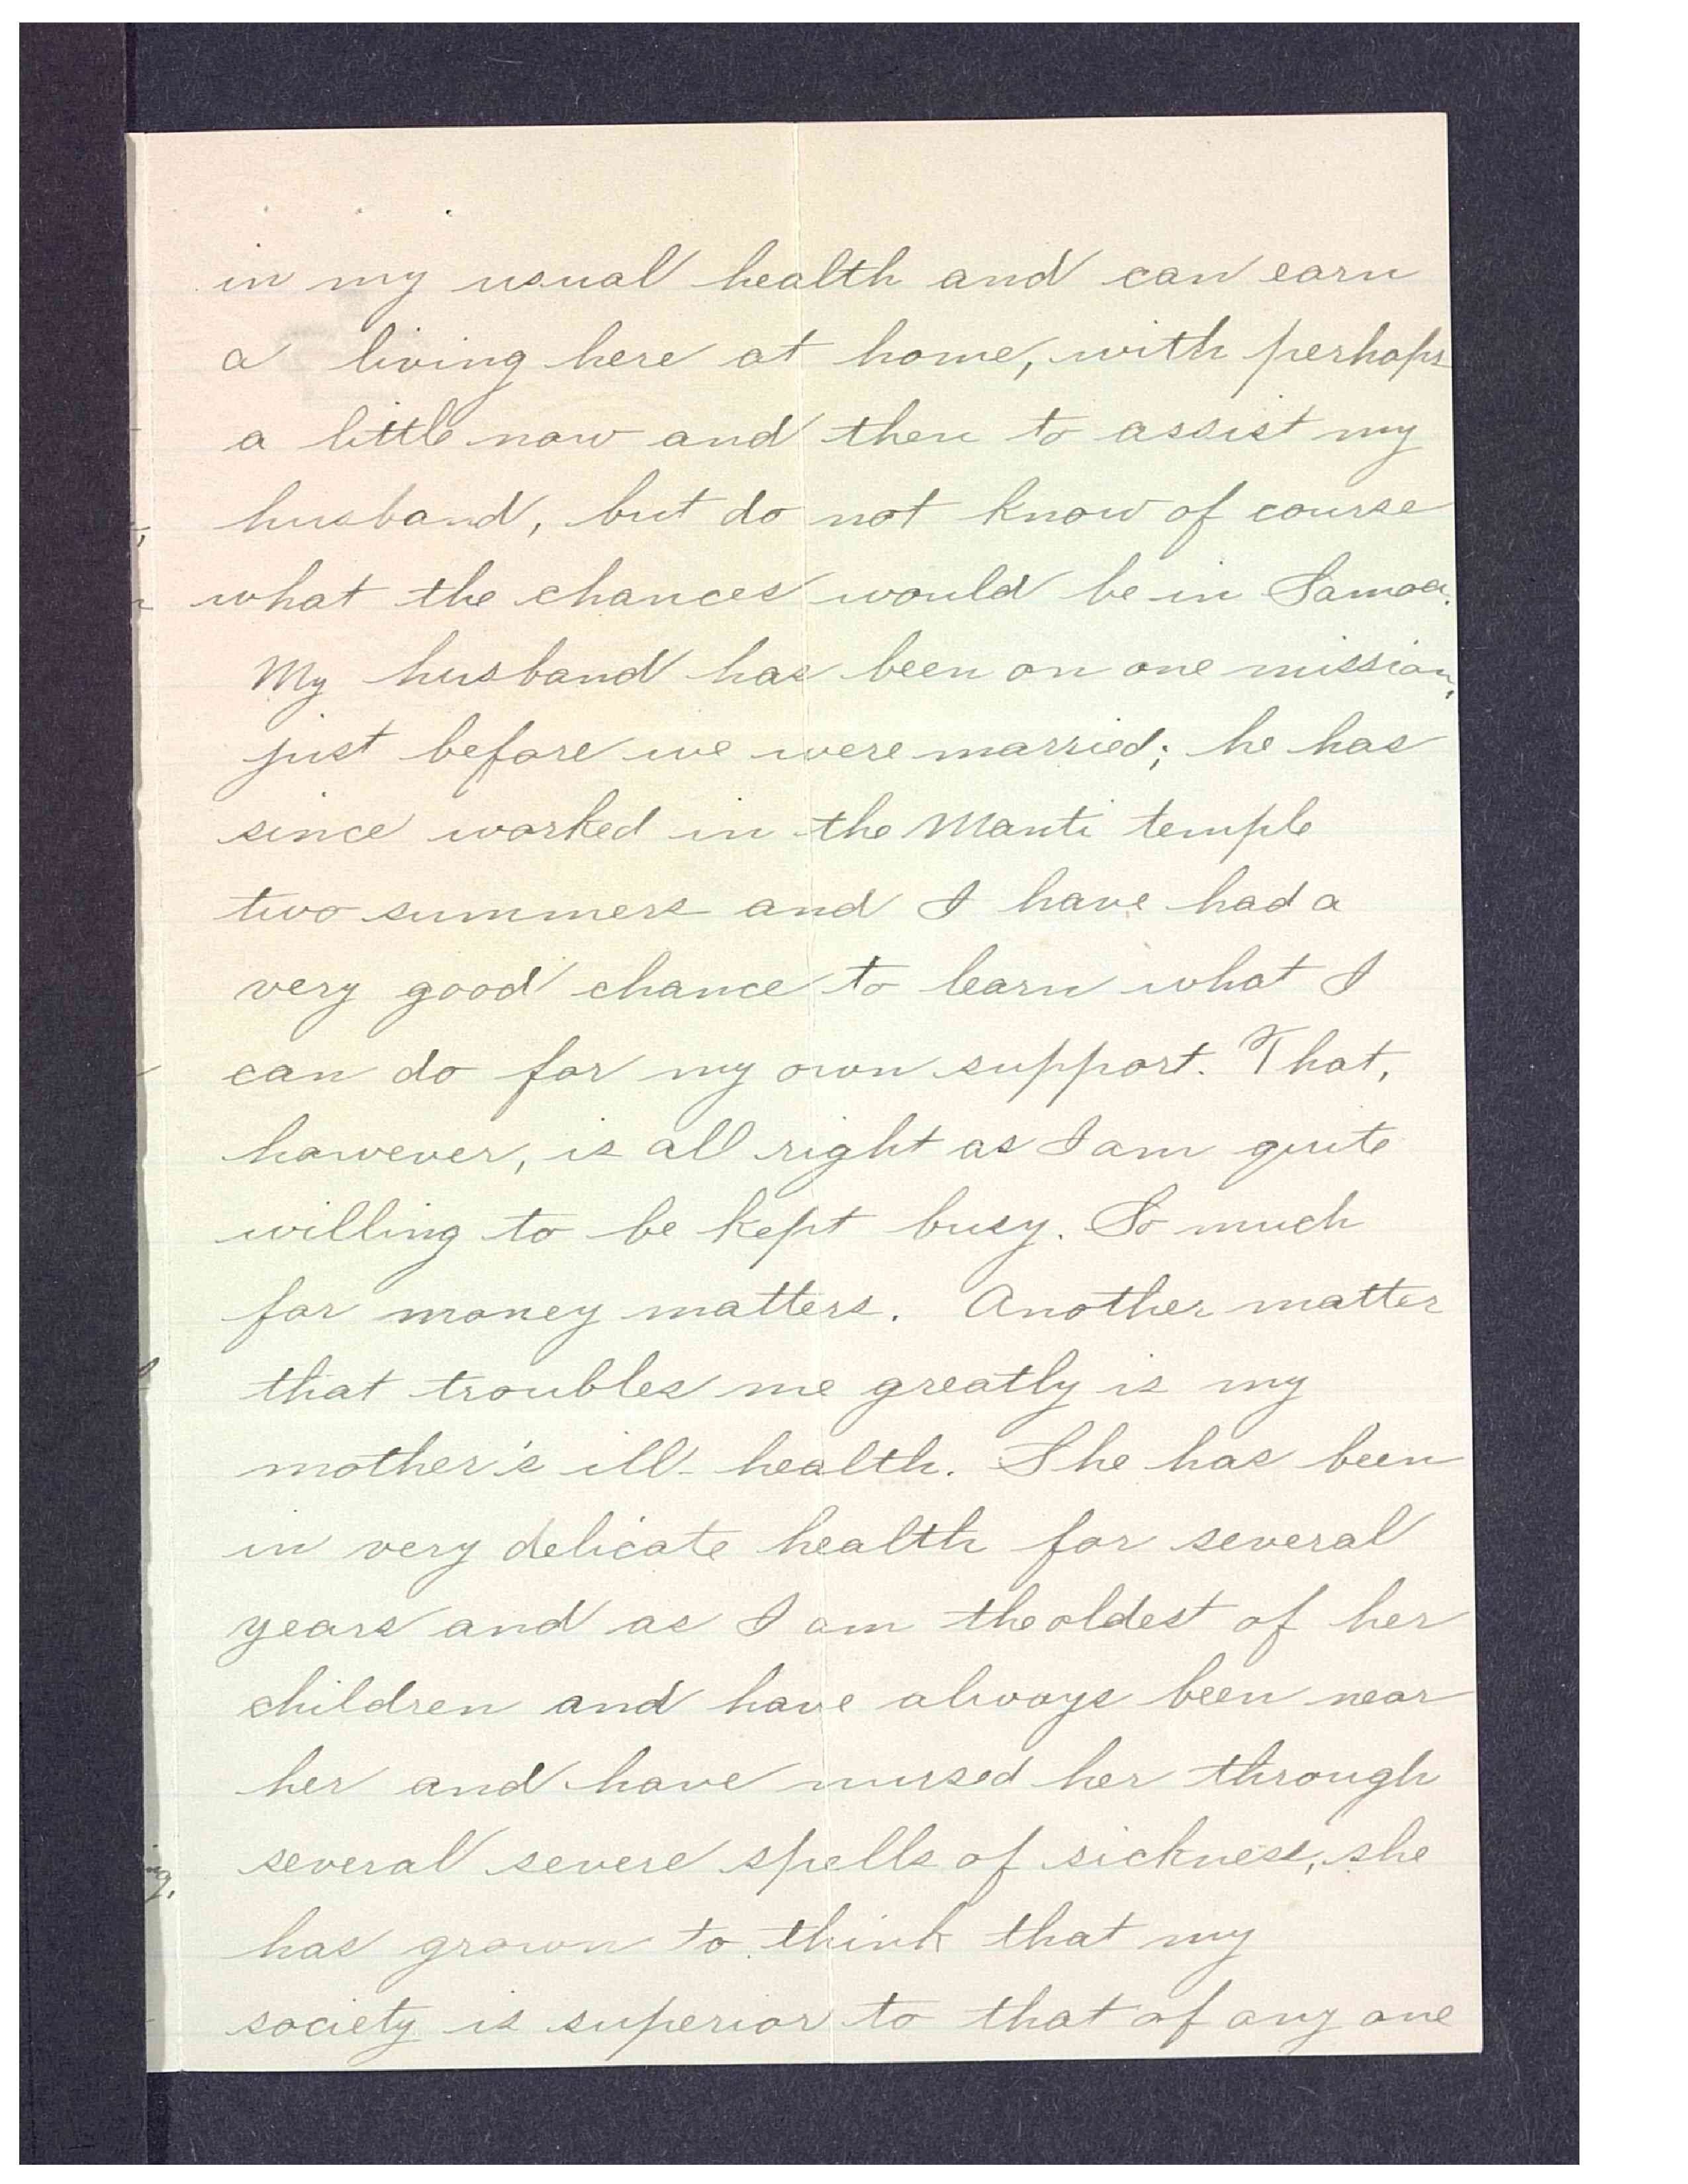 in my usual health and can earn
a living here at home, with perhaps
a little now and then to assist my
husband, but do not know of course
what the chances would be in Samoa.
My husband has been on one mission,
just before we were married; he has
since worked in the Manti temple
two summers and I have had a
very good chance to learn what I
can do for my own support. That,
however, is all right as I am quite
willing to be kept busy. So much
for money matters. Another matter
that troubles me greatly is my
mother's ill-health. She has been
in very delicate health for several
years and as I am the oldest of her
children and have always been near
her and have nursed her through
several severe spells of sickness, she
has grown to think that my
society is superior to that of any one